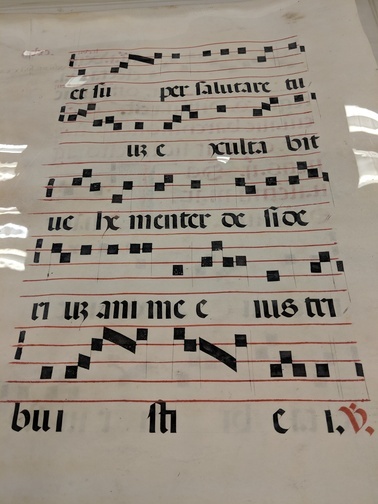 et su per salutare tu
uz e xulta bit
ue he menter de side
ri uz ani me e ius tri
bui sti e i. V.